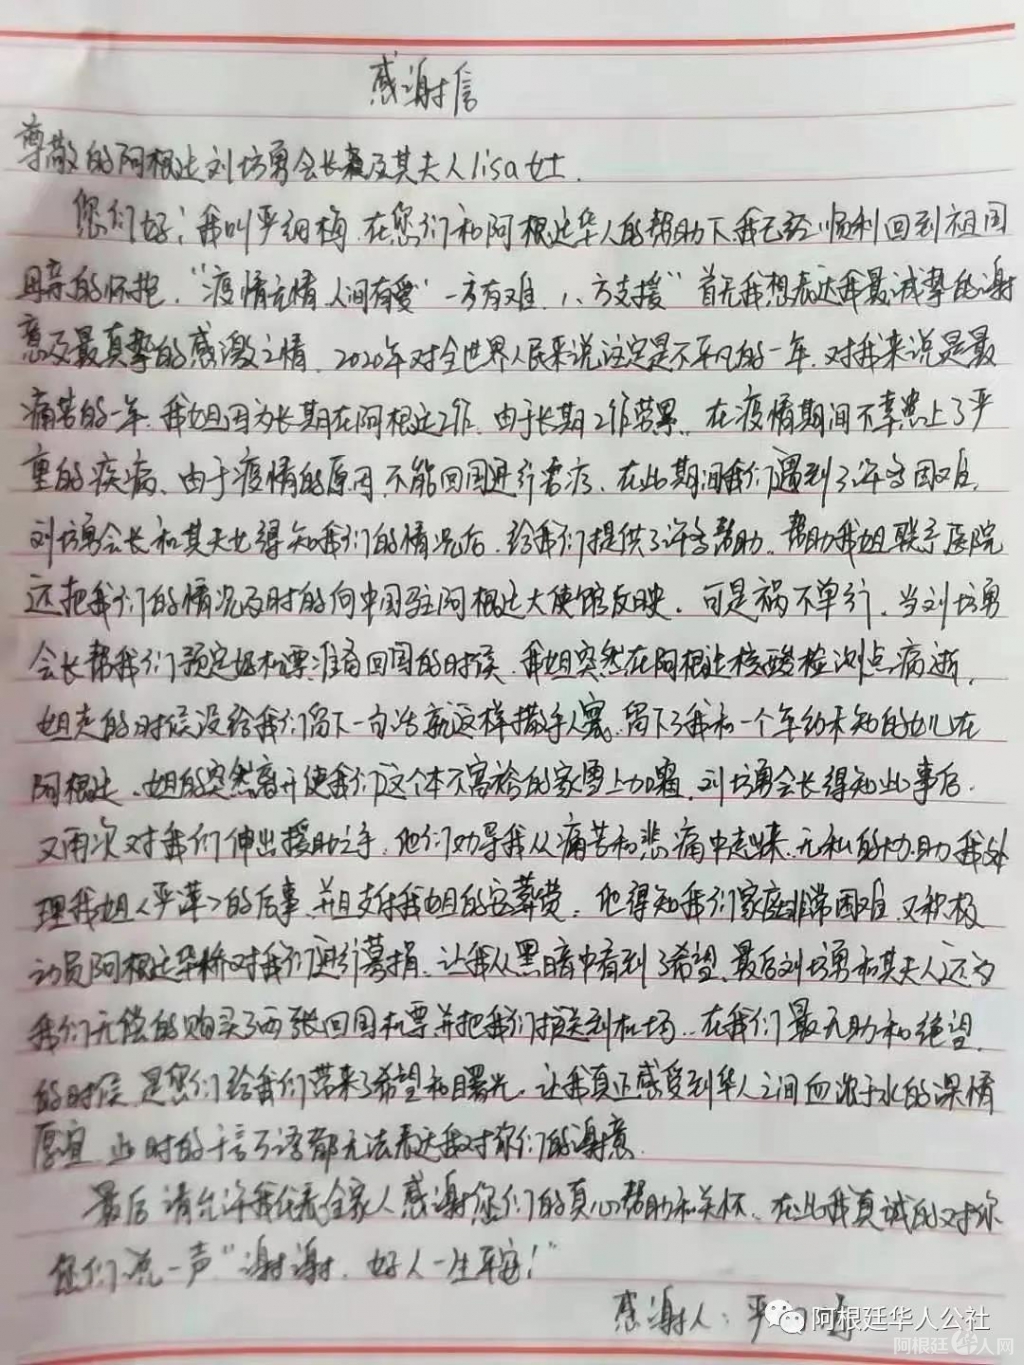 感谢信
尊敬的阿根廷刘芳勇会长及其夫人lisa女士.
您们好:我叫严细梅.在您们和阿根廷华人的帮助下我已经顺利回到祖国
母亲的怀抱."疫情无情人间有爱"一方有难.八方支援"首先我想表达我最诚挚的谢
意及最真挚的感激之情.2020年对全世界人民来说注定是不平凡的一年.对我来说是最
痛苦的一年.我姐因为长期在阿根廷工作.由于长期工作劳累.在疫情期间不幸患上了严
重的疾病、由于疫情的原因.不能回国进行看病.在此期间我们遇到了许多困难.
刘芳勇会长和其夫也得知我们的情况后.给我们提供了许多帮助.帮助我姐联系医院
还把我们的情况及时的向中国驻阿根廷大使馆反映.可是祸不单行.当刘芳勇
会长帮我们预定好机票准备回国的时候.我姐突然在阿根廷核酸检测点病逝.
姐走的时候没给我们留下一句话就这样撒手人寰.留下了我和一个年幼未知的女儿在
阿根廷.姐的突然离开使我们这个本不富裕的家雪上加霜.刘芳勇会长得知此事后.
又再次对我们伸出援助之手.他们劝导我从痛苦和悲痛中走出来.无私的协助我处
理我姐<严萍>的后事.并且支付我姐的安葬费.他得知我们家庭非常困难.又积极
动员阿根廷华桥对我们进行募捐.让我从黑暗中看到了希望.最后刘芳勇和其夫人还为
我们无偿的购买了两张回国机票并把我们护送到机场.在我们最无助和绝望
的时候.是您们给我们带来了希望和曙光.让我真正感受到华人之间血浓于水的深情
厚宜.此时的千言万语都无法表达我对你们的谢意.
最后请允许我代表全家人感谢您们的真心帮助和关怀.在此我真诚的对你
您们说一声"谢谢.好人一生平安!"
感谢人:严
阿根廷华人公社
阿根廷华人网